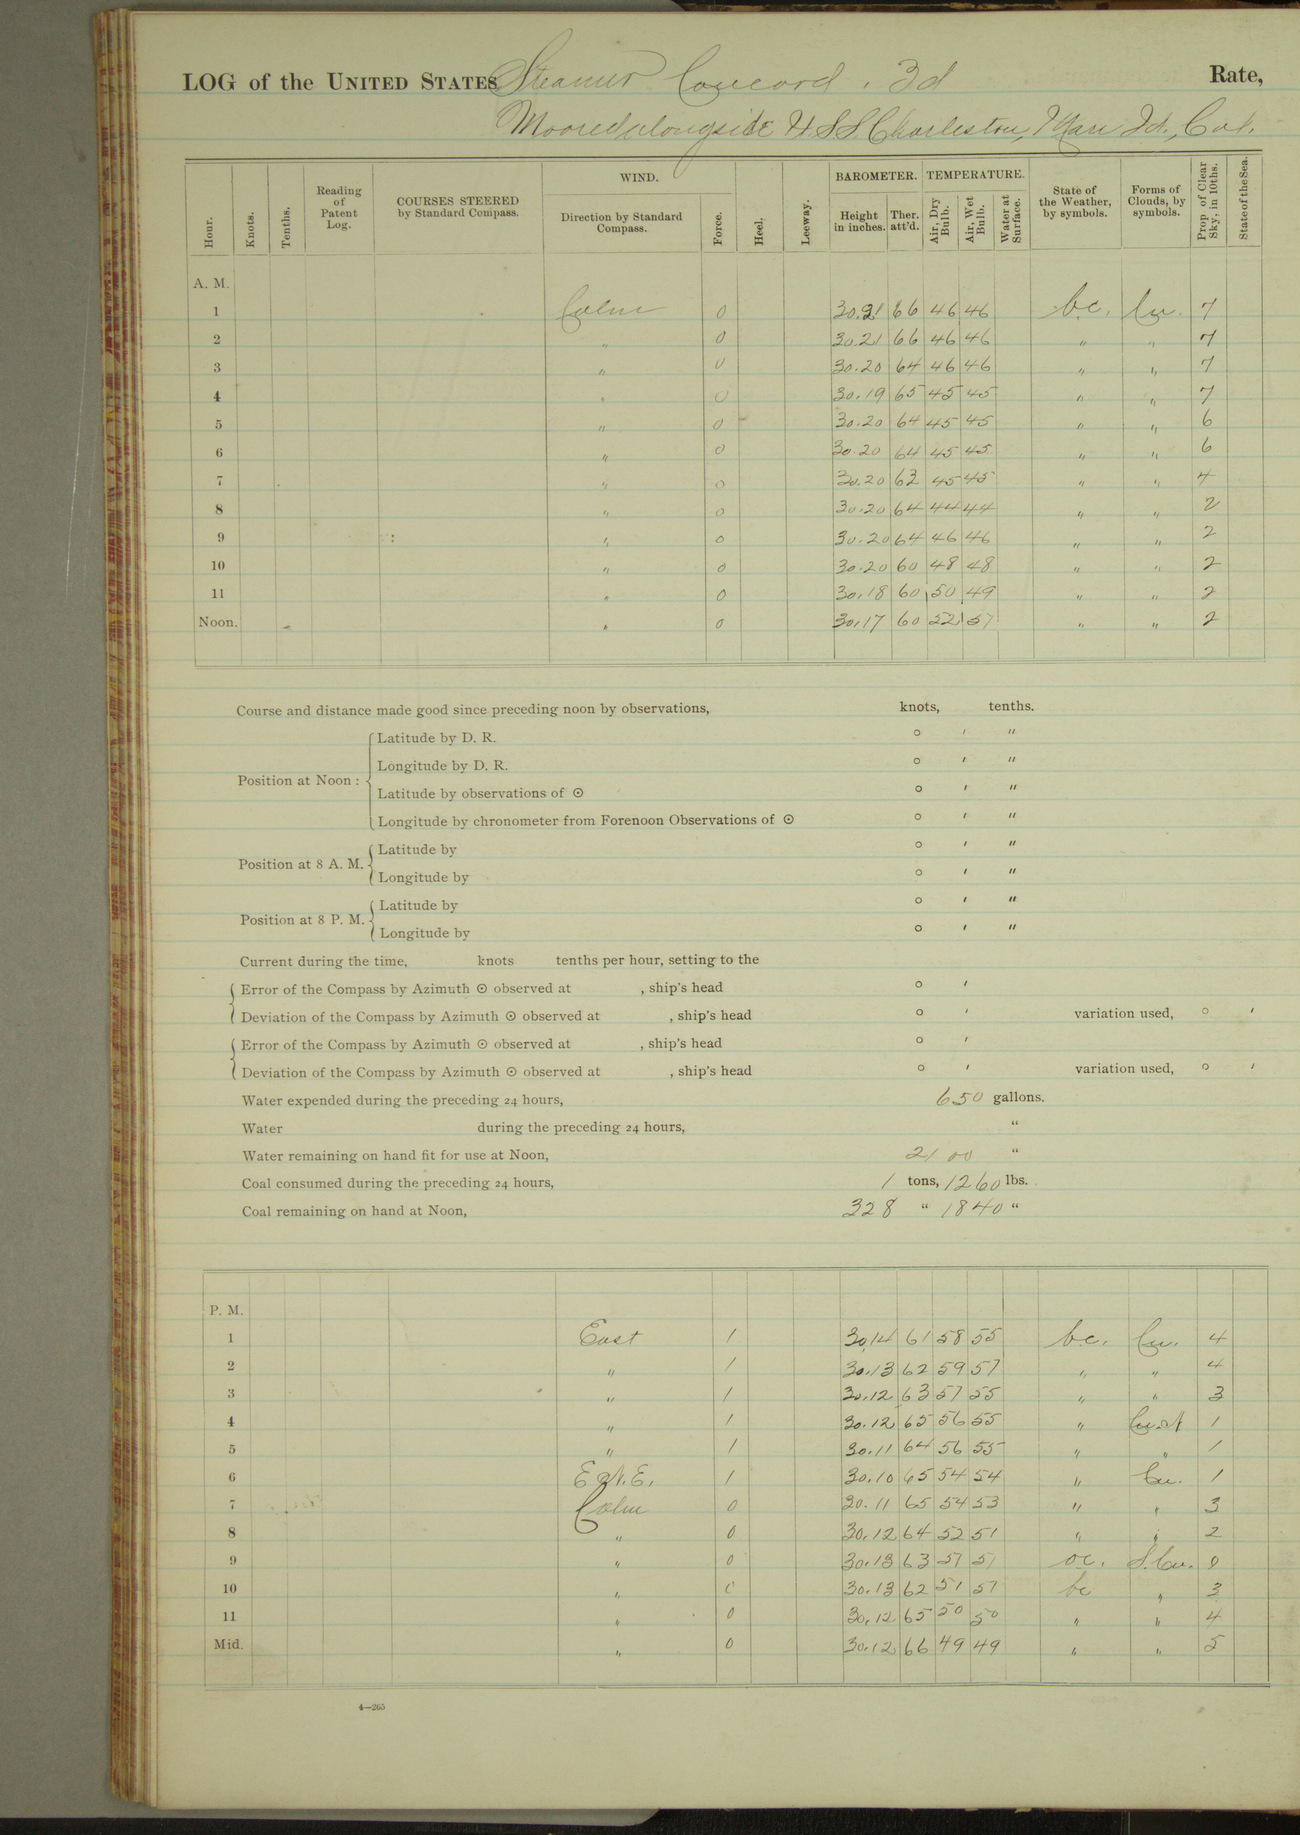 LOG of the UNITED STATES Steamer Concord, 3d Rate,
Moored alongside U.S.S. Charleston, Mare Id., Cal.
Hour. Knots. Tenths. Reading of Patent Log. COURSES STEERED by Standard Compass. WIND. Direction by Standard Compass. Force. Heel. Leeway. BAROMETER. Height in inches. Ther. att'd. TEMPERATURE. Air, Dry Bulb. Air, Wet Bulb. Water at Surface. State of the Weather, by symbols. Forms of Clouds, by symbols. Prop. of Clear Sky, in 10ths. State of the Sea.
A. M.
1 Calm 0 30.21 66 46 46 bc. Cu. 7
2 " 0 30.21 66 46 46 " " 7
3 " 0 30.20 64 46 46 " " 7
4 " 0 30.19 65 45 45 " " 7
5 " 0 30.20 64 45 45 " " 6
6 " 0 30.20 64 45 45 " " 6
7 " 0 30.20 62 45 45 " " 4
8 " 0 30.20 64 44 44 " " 2
9 " 0 30.20 64 46 46 " " 2
10 " 0 30.20 60 48 48 " " 2
11 " 0 30.18 60 50 49 " " 2
Noon. " 0 30.17 60 52 51 " " 2
Course and distance made good since preceding noon by observations, knots, tenths.
Position at Noon :
Latitude by D. R. ° ′ ″
Longitude by D. R. ° ′ ″
Latitude by observations of ☉ ° ′ ″
Longitude by chronometer from Forenoon Observations of ☉ ° ′ ″
Position at 8 A. M.
Latitude by ° ′ ″
Longitude by ° ′ ″
Position at 8 P. M.
Latitude by ° ′ ″
Longitude by ° ′ ″
Current during the time, knots tenths per hour, setting to the
Error of the Compass by Azimuth ☉ observed at , ship's head ° ′
Deviation of the Compass by Azimuth ☉ observed at , ship's head ° ′ variation used, ° ′
Error of the Compass by Azimuth ☉ observed at , ship's head ° ′
Deviation of the Compass by Azimuth ☉ observed at , ship's head ° ′ variation used, ° ′
Water expended during the preceding 24 hours, 650 gallons.
Water during the preceding 24 hours, "
Water remaining on hand fit for use at Noon, 2100 "
Coal consumed during the preceding 24 hours, 1 tons, 1260 lbs.
Coal remaining on hand at Noon, 328 " 1840 "
P. M.
1 East 1 30.14 61 58 55 bc. Cu. 4
2 " 1 30.13 62 59 57 " " 4
3 " 1 30.12 63 57 55 " " 3
4 " 1 30.12 65 56 55 " Cu.N 1
5 " 1 30.11 64 56 55 " " 1
6 E.N.E. 1 30.10 65 54 54 " Cu. 1
7 Calm 0 30.11 65 54 53 " " 3
8 " 0 30.12 64 52 51 " " 2
9 " 0 30.13 63 51 51 oc. S.Cu. 0
10 " 0 30.13 62 51 51 bc " 3
11 " 0 30.12 65 50 50 " " 4
Mid. " 0 30.12 66 49 49 " " 5
4—265